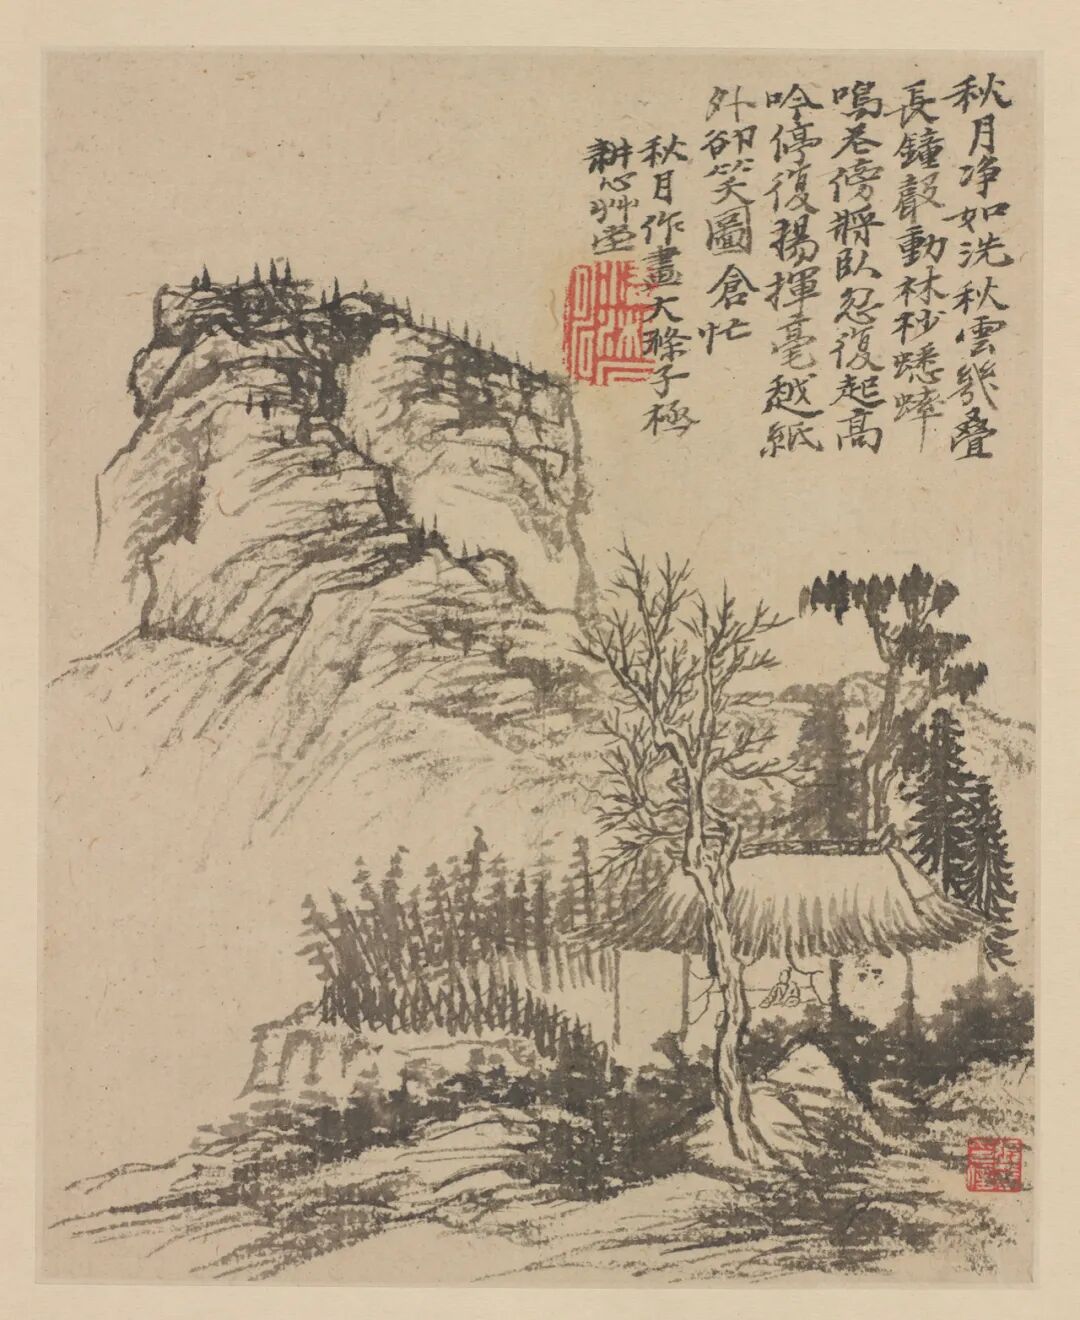 秋月净如洗秋雲幾叠
長鐘聲動林秒蟋蟀
鳴茗傍將臥忽復起高
吟停復揚揮毫越紙
外卻笑圖倉忙
秋月作畫大滌子極
耕心艸堂